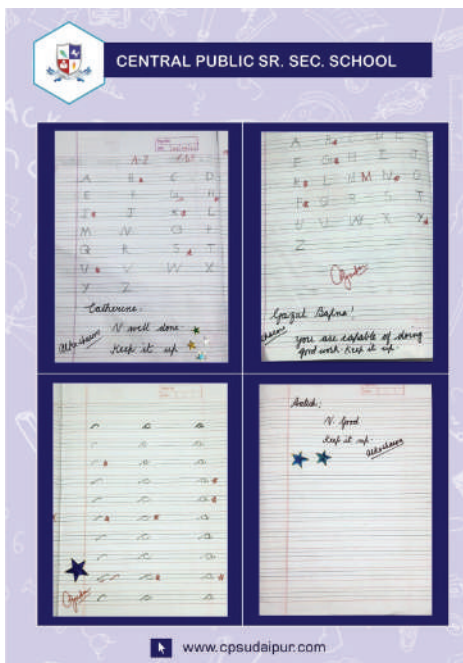 CENTRAL PUBLIC SR. SEC. SCHOOL
A-Z
A B C D
E F G H
I J K L
M N O P
Q R S T
U V W X
Y Z
Catherine.
V well done.
Keep it up
F G H I J
K L M M N O
P Q R S T
U V W X Y
Z
Gazal Bafna!
You are capable of doing
good work. Keep it up.
V. Good
Keep it up.
www.cpsudaipur.com